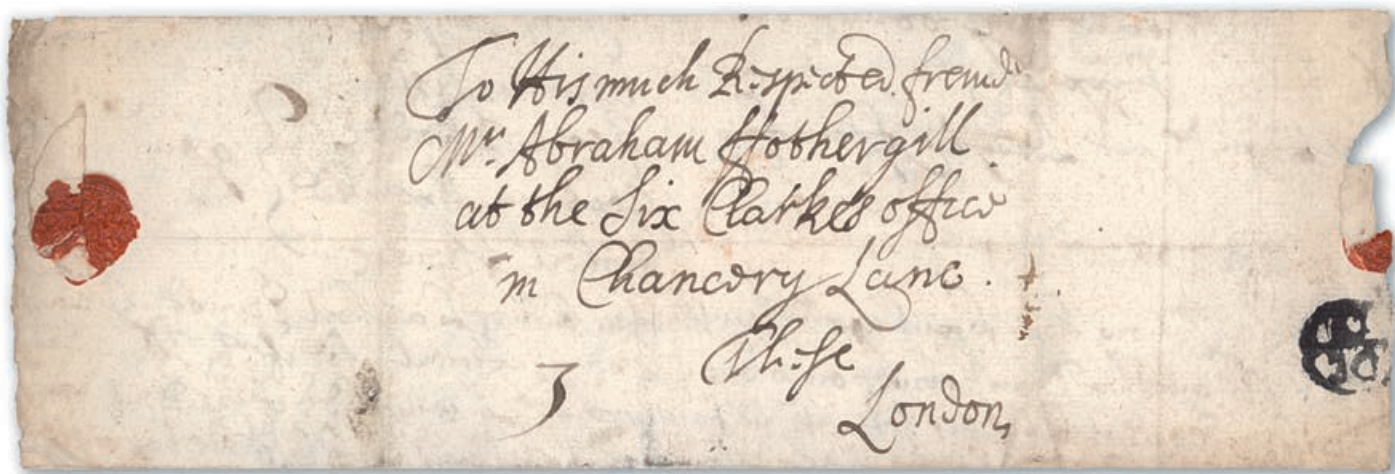 To His much Respected freind
Mr. Abraham ffothergill
at the Six Clarkes office
in Chancery Lane.
These
3
London,